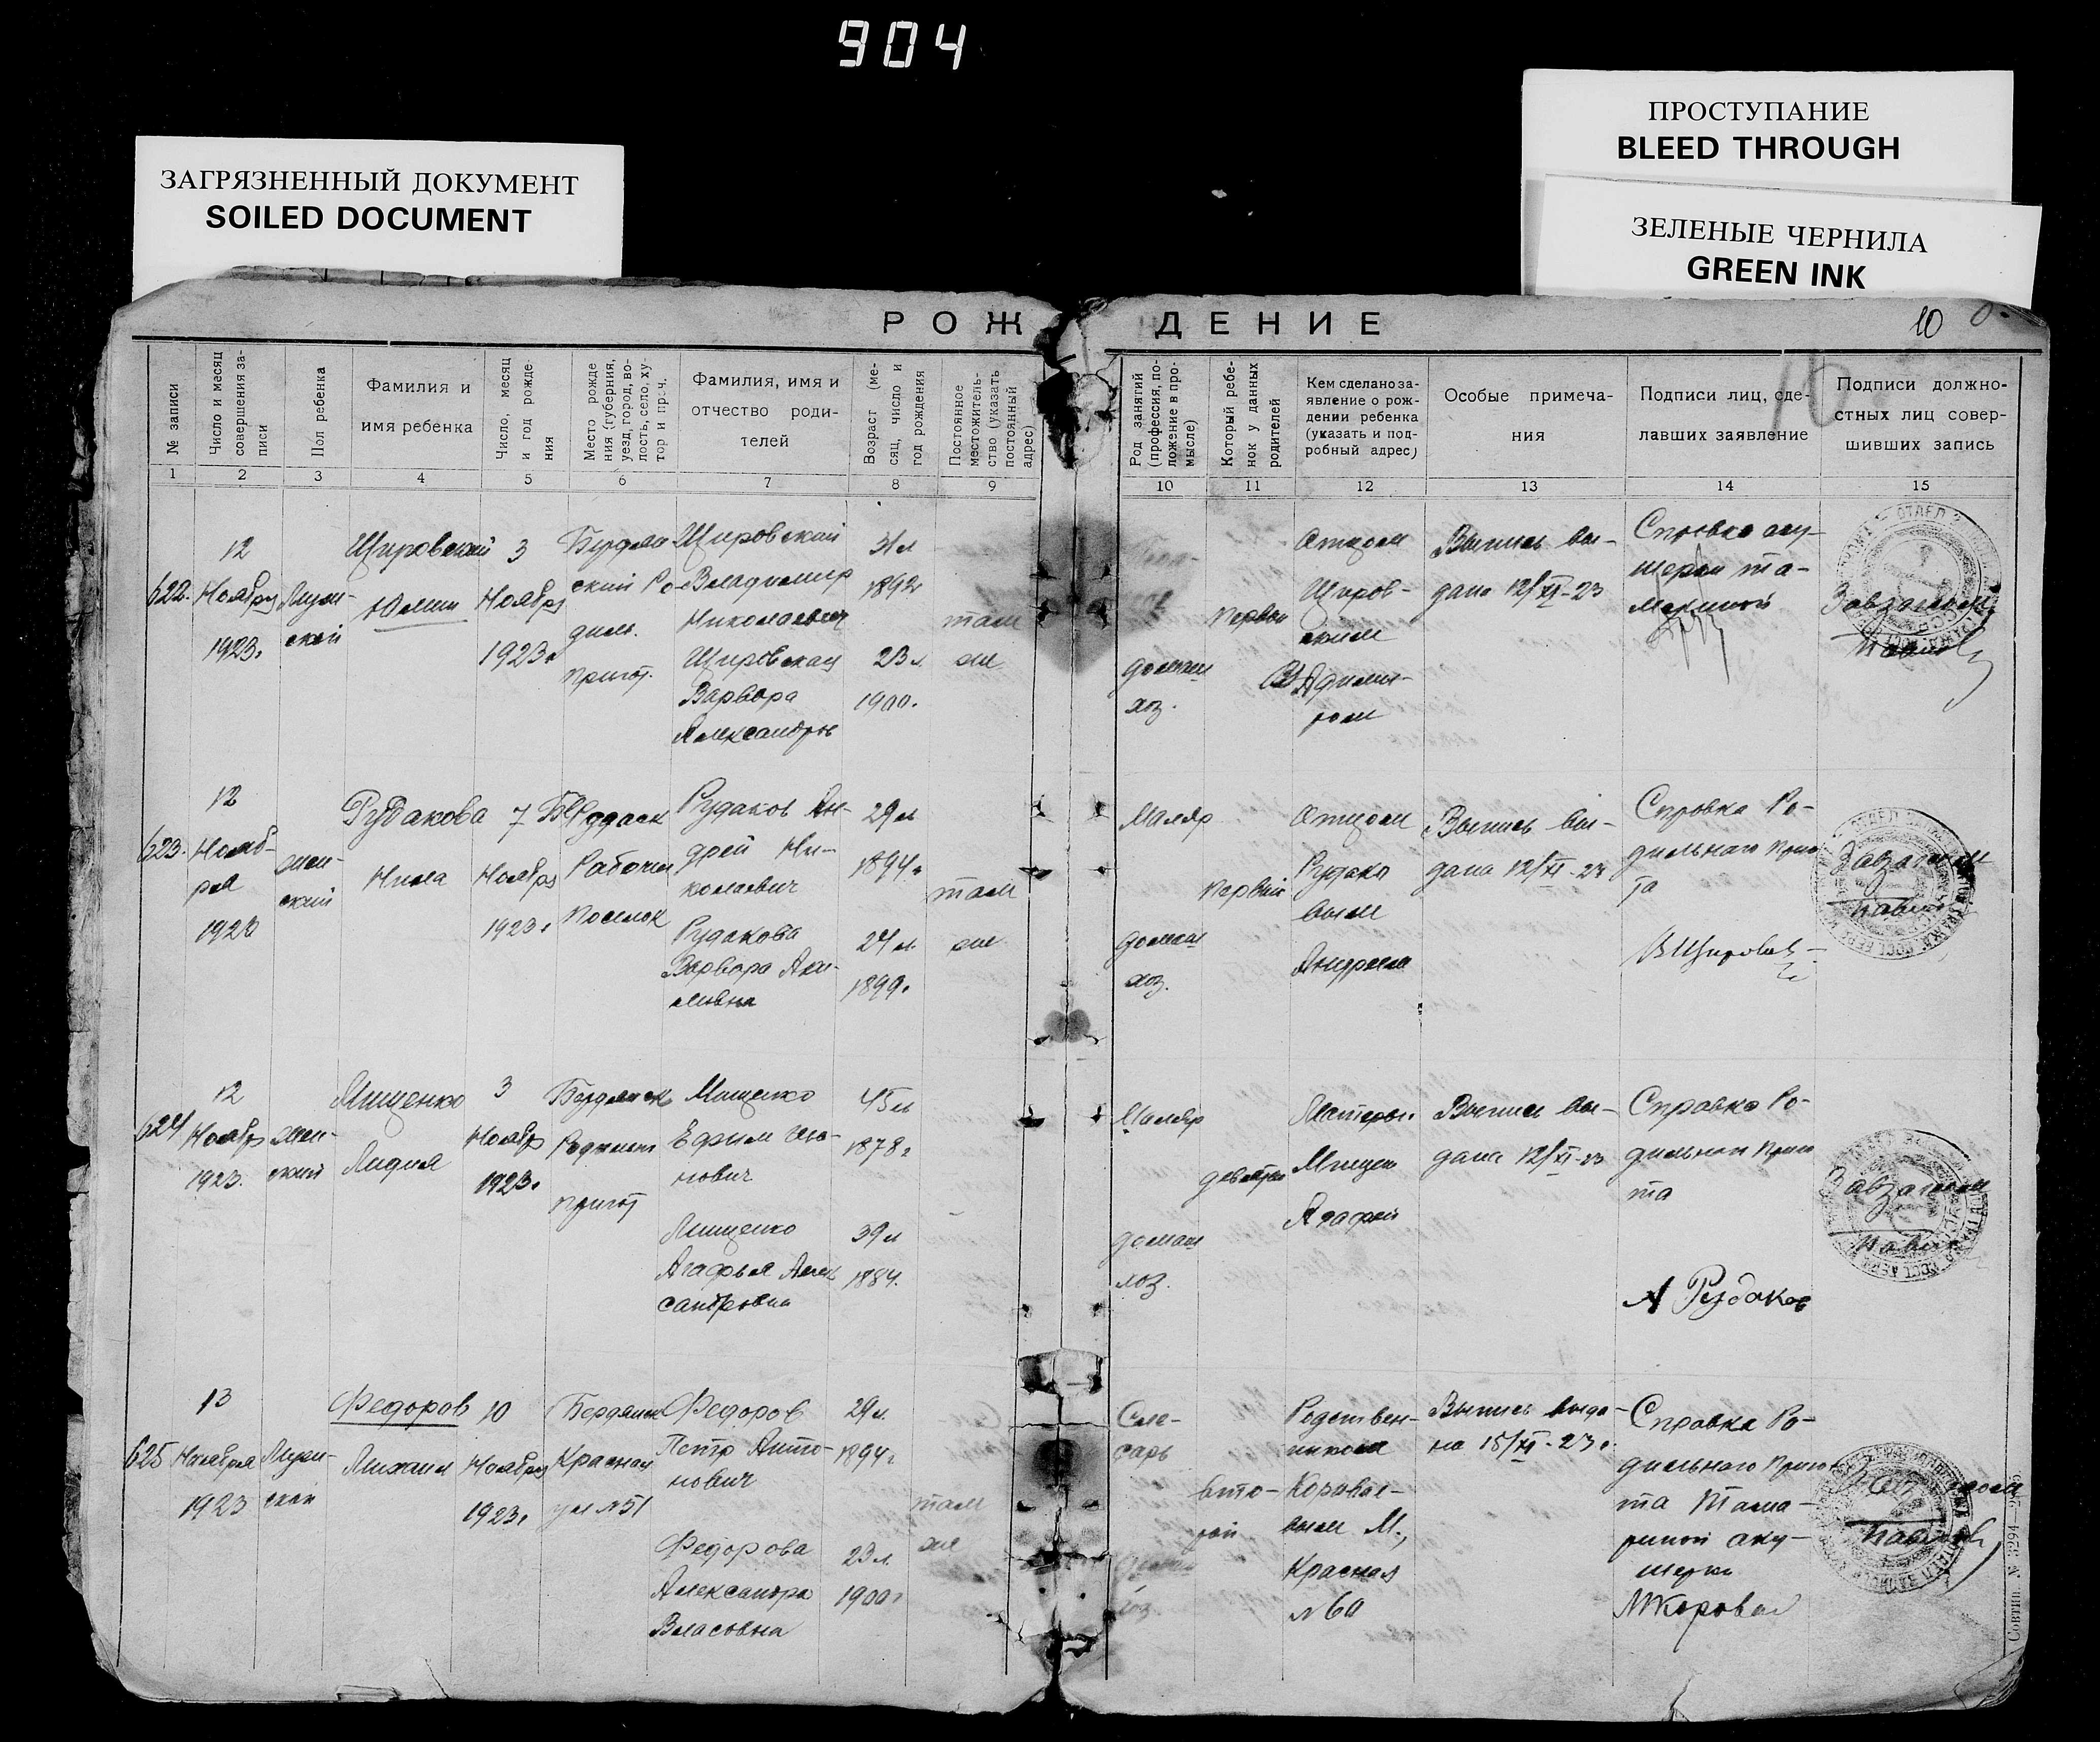 904
ЗАГРЯЗНЕННЫЙ ДОКУМЕНТ
SOILED DOCUMENT
ПРОСТУПАНИЕ
BLEED THROUGH
ЗЕЛЕНЫЕ ЧЕРНИЛА
GREEN INK
РОЖДЕНИЕ
10
№ записи
Число и месяц
совершения за-
писи
Пол ребенка
Фамилия и
имя ребенка
Число, месяц
и год рожде-
ния
Место рожде
ния (губерния,
уезд, город, во-
лость, село, ху-
тор и проч.
Фамилия, имя и
отчество роди-
телей
Возраст (ме-
сяц, число и
год рождения
Постоянное
местожитель-
ство (указать
постоянный
адрес)
Род занятий
(профессия, по-
ложение в про-
мысле)
Который ребе-
нок у данных
родителей
Кем сделано за-
явление о рож-
дении ребенка
(указать и под-
робный адрес)
Особые примеча-
ния
Подписи лиц, сде-
лавших заявление
Подписи должно-
стных лиц совер-
шивших запись
1 2 3 4 5 6 7 8 9 10 11 12 13 14 15
622.
12
Ноября
1923.
Мужи-
ской
Щировский
Юлий
3
Ноября
1923г
Бердян
ский Ро-
диль.
приют.
Щировский
Владимир
Николаевич
Щировская
Варвора
Александров
31л
1892г
23л.
1900.
там
же
домаш
хоз.
первый
Отцом
Щиров-
ским
Выпись вы-
дана 12/XI-23
Справка аку-
Завзагсом
623.
12
Нояб-
ря
1923
жен-
ский
Рудакова
Нина
7
Ноября
1923г
Рабочий
поселок
Рудаков Ан-
дрей Ни-
колаевич
Рудакова
Варвора Аки-
мовна
29л
1894г
24л.
1899г
там
же
Маляр
домаш
хоз.
первый
Отцом
Рудако
вым
Андреем
Выпись вы-
дана 12/XI-23
Справка Ро-
дильного прию
та
ВЩировск
Завзагсом
624
12
Ноября
1923.
жен-
ский
Мищенко
Лидия
3
Ноября
1923г
Бердянск
приют
Мищенко
Ефим Ива-
нович
Мищенко
Агафья Алек
сандровна
45л
1878г
39л
1884.
Маляр
домаш
хоз.
девятый
Матерью
Мищен
Агафей
Выпись вы-
дана 12/XI-23
Справка Ро-
дильного прию
та
А Рудаков
Завзагсом
625
13
Ноября
1923
Мужи-
ской
Федоров
Михаил
10
Ноября
1923г
Бердянск
Красная
ул №51
Федоров
Петр Анто-
нович
Федорова
Александра
Власовна
29л.
1894г
23л.
1900г
там
же
Сле-
сарь
вто-
рой
Родствен-
ником
М.,
Красная
№60
Выпись выда-
на 15/XI-23г.
Справка Ро-
дильного Прию
та
аку-
шерки
Совтип. № 3294